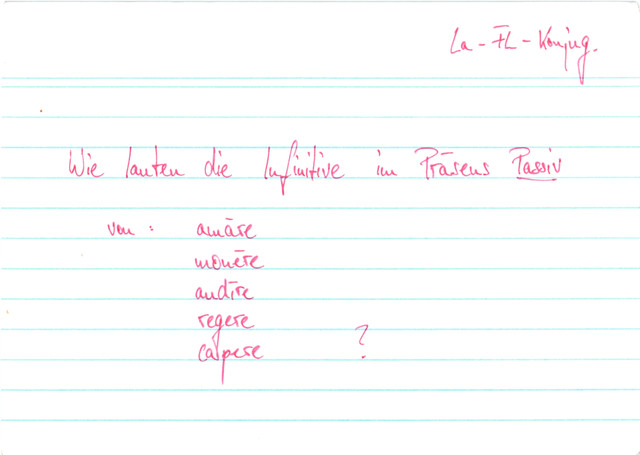 La - FL - Konjug.
Wie lauten die Infinitive im Präsens Passiv
von : amāre
monēre
audīre
regere
capere ?